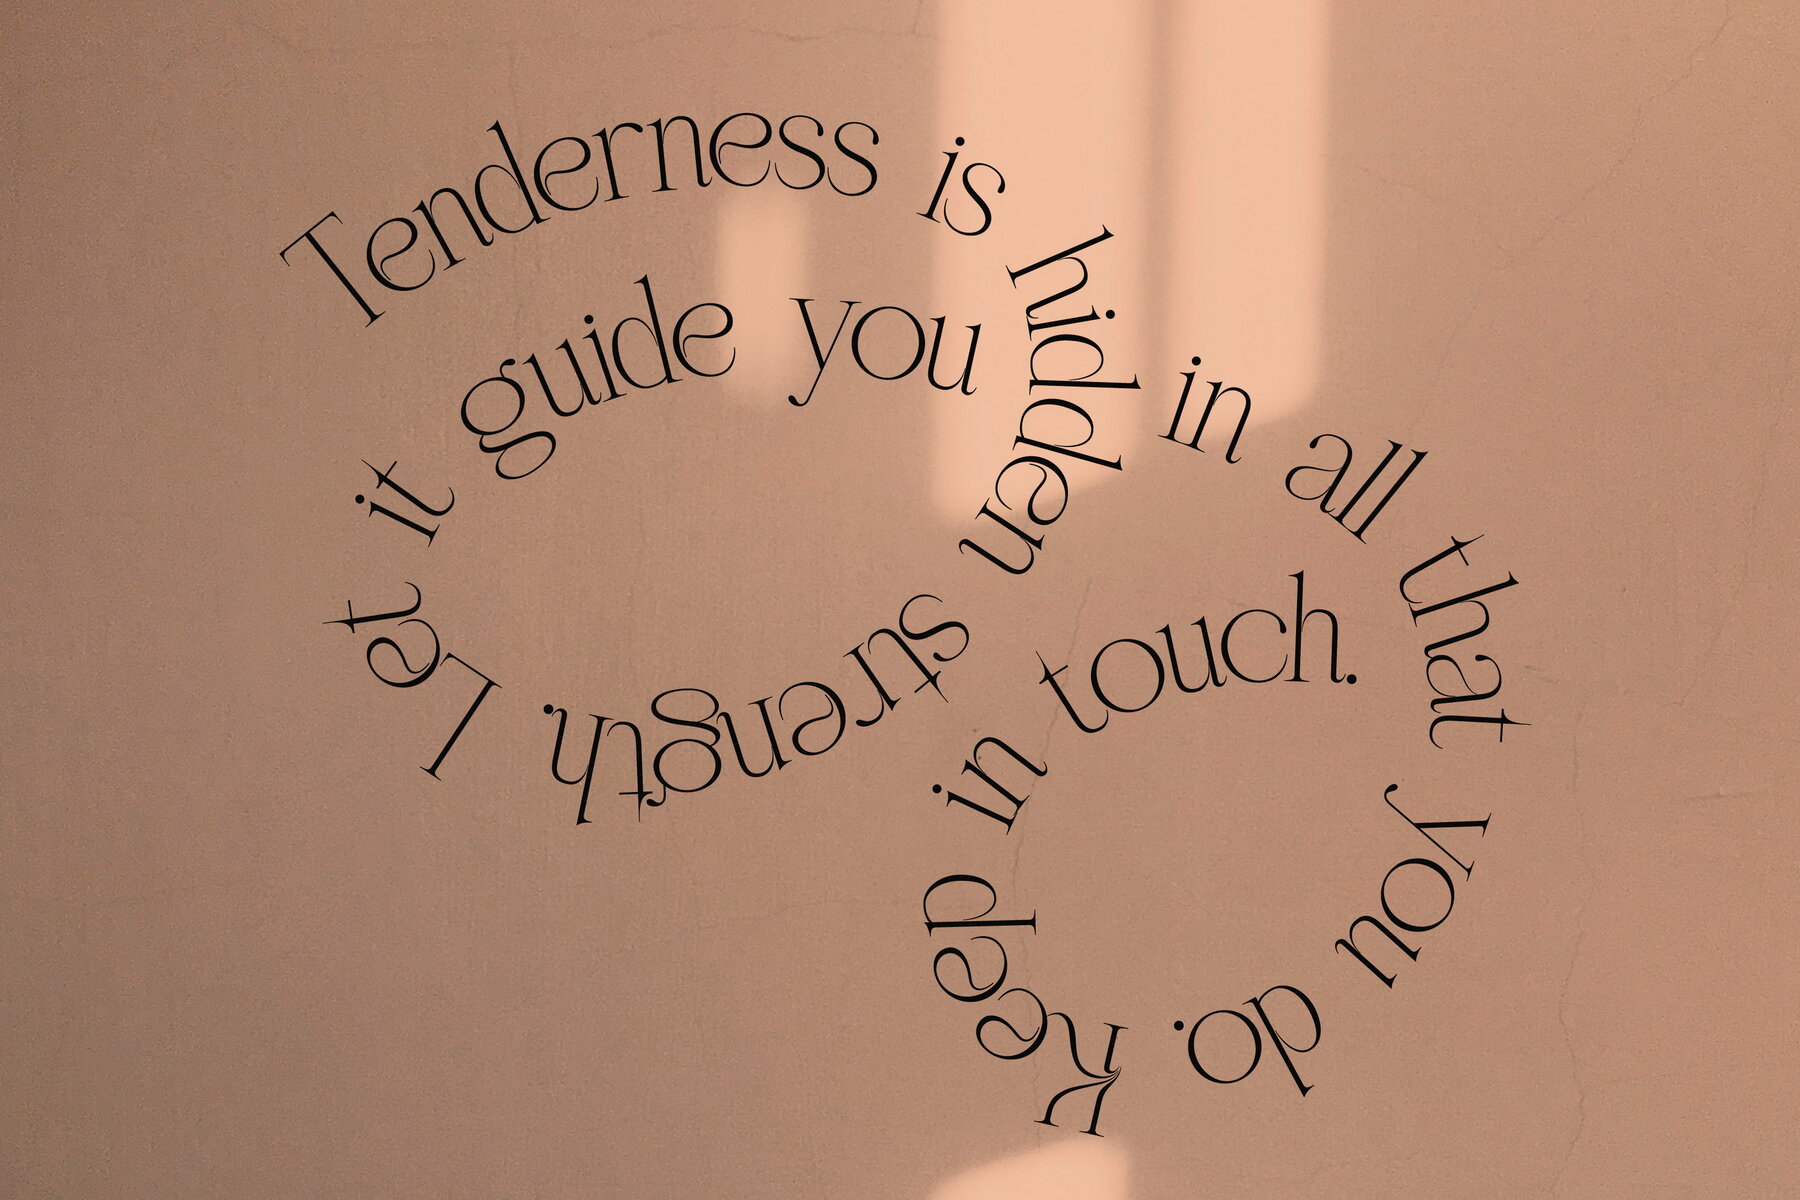 Tenderness is hidden strength. Let it guide you in all that you do. Keep in touch.